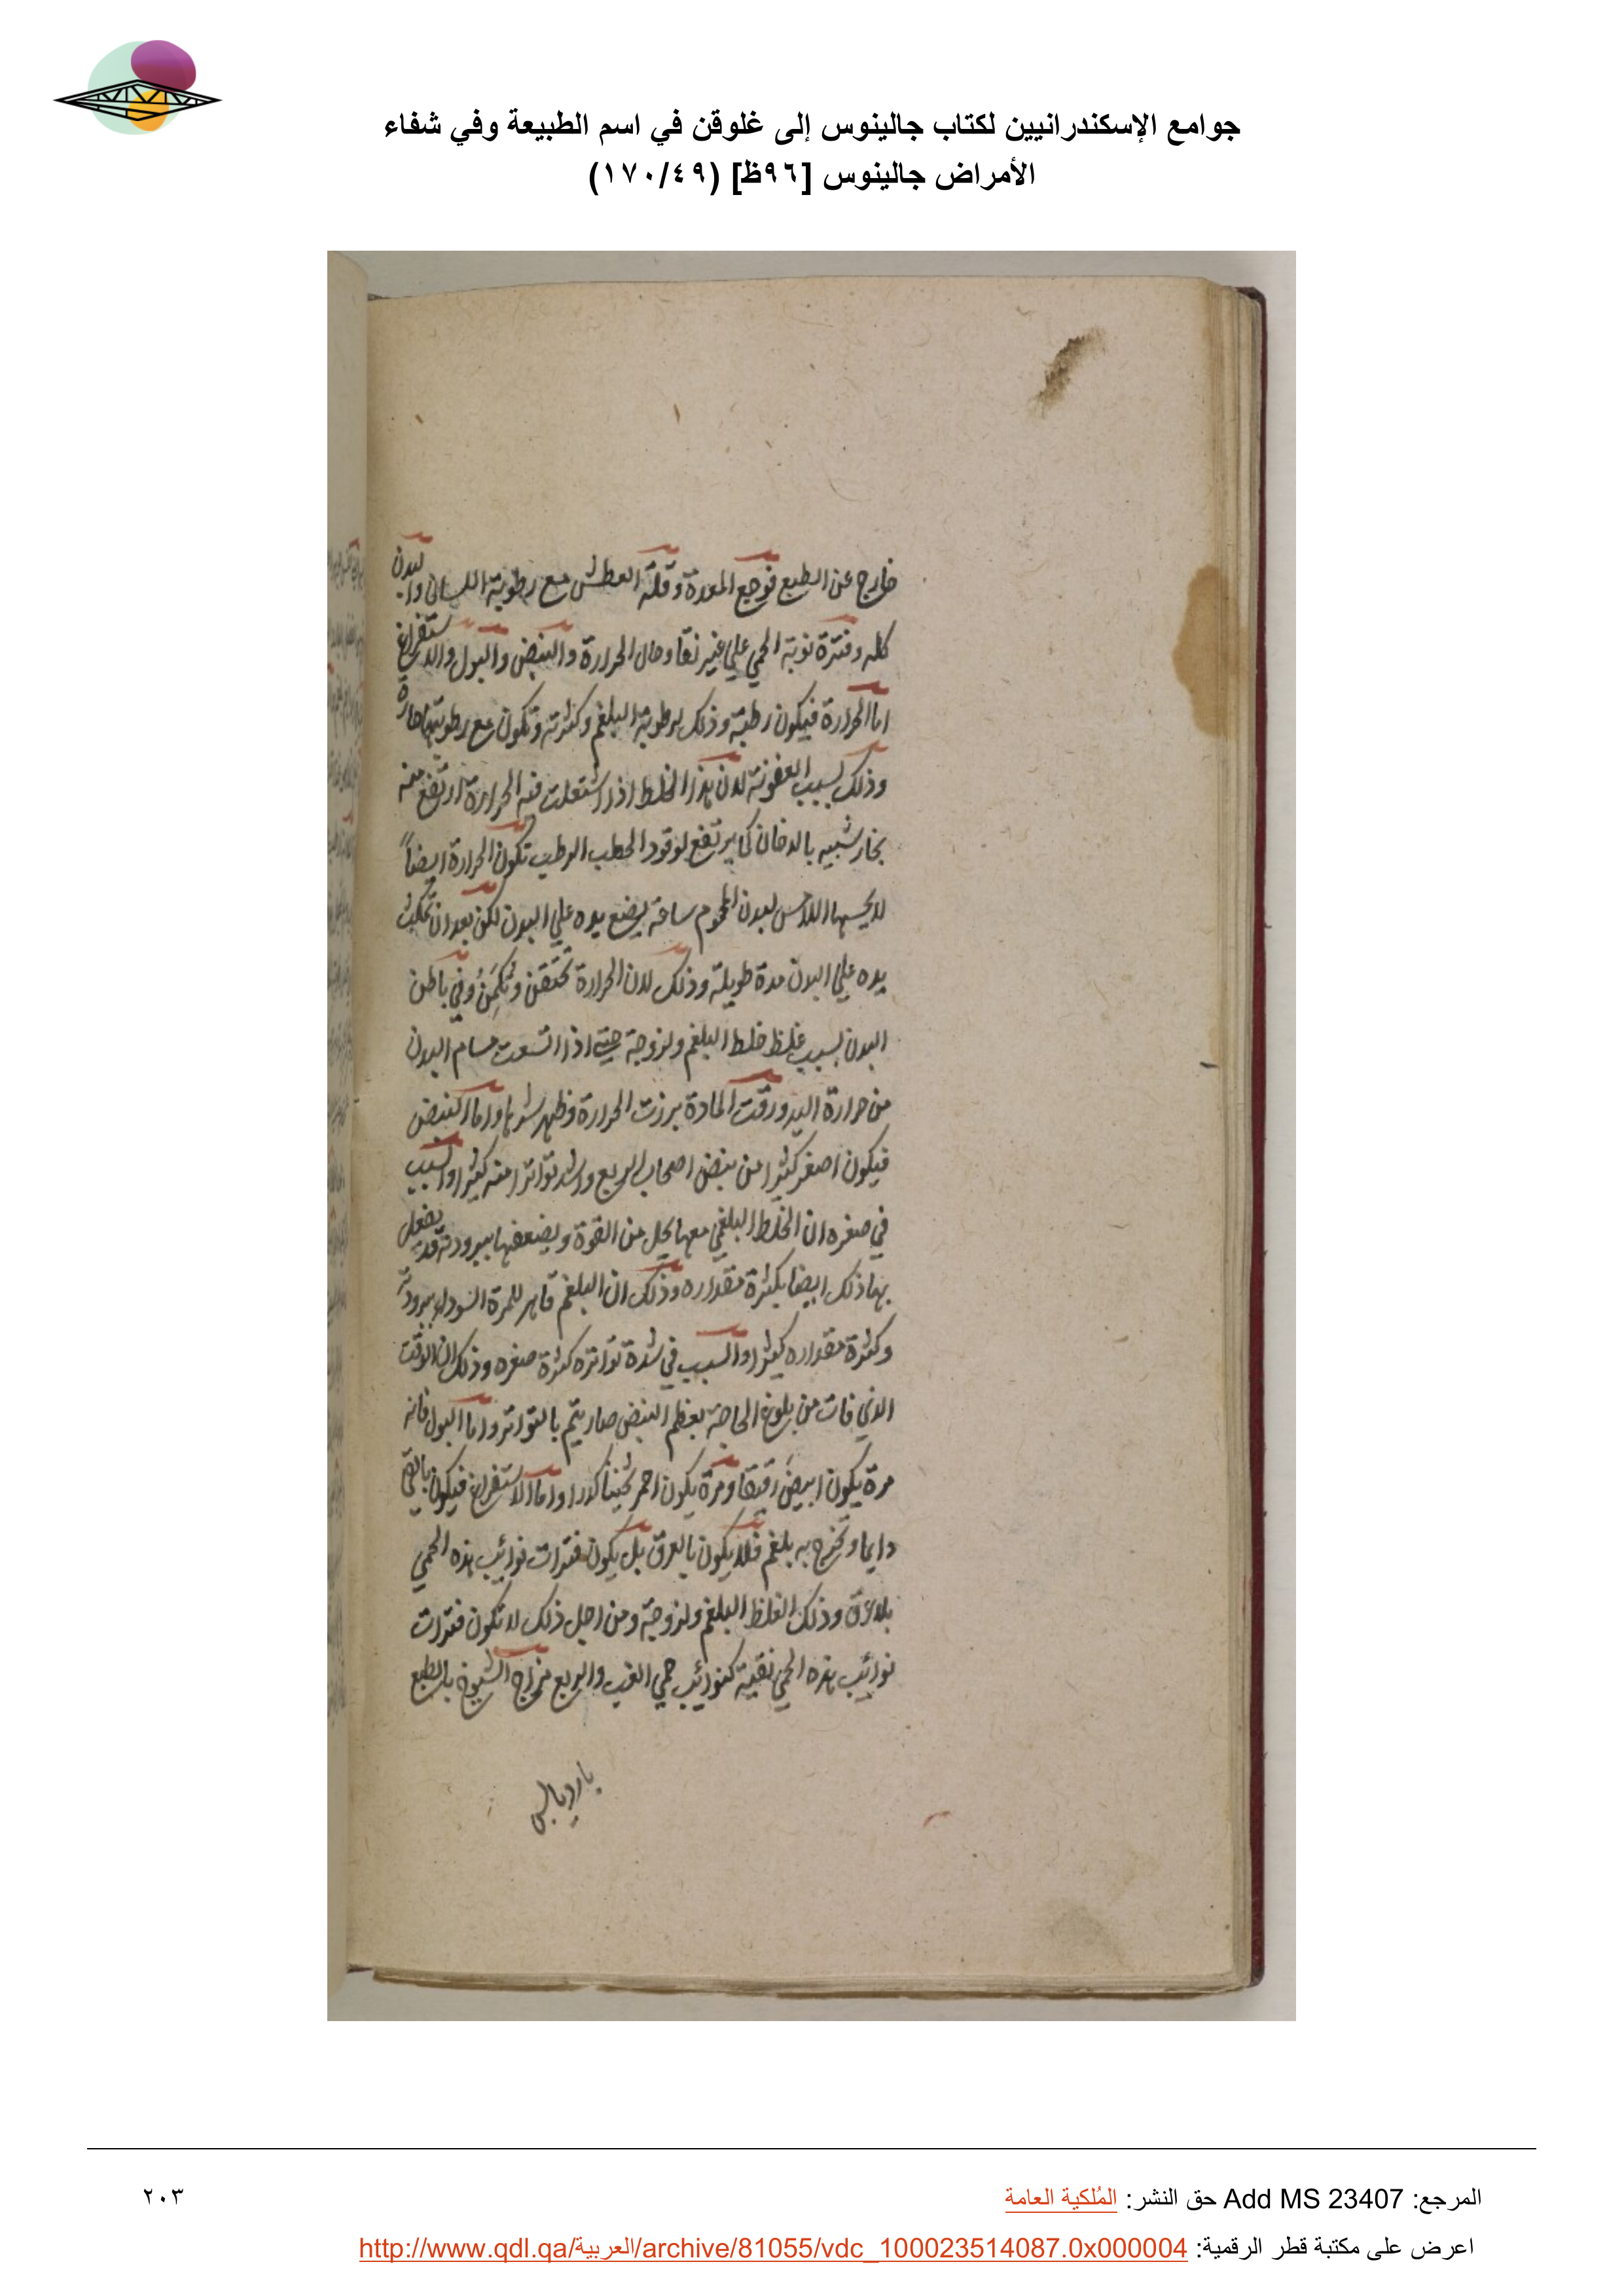 جوامع الإسكندرانيين لكتاب جالينوس إلى غلوقن في اسم الطبيعة وفي شفاء
الأمراض جالينوس [٩٦ظ] (١٧٠/٤٩)
خارج عن الطبع فوجع المعدة وقلة العطش مع رطوبة اللسان والبدن
كله وفترة نوبة الحمي علي غير نقا وحال الحرارة والنبض والبول والاستفراغ
اما الحرارة فيكون رطبة وذلك لرطوبة البلغم وكثرته وتكون مع رطوبتها حارة
وذلك لسبب العفونة لان هذا الخلط اذا اشتعلت فيه الحرارة ارتفع منه
بخار شبيه بالدخان كما يرتفع لوقود الحطب الرطب تكون الحرارة ايضاً
لا يحسها اللامس لبدن المحموم ساعة يضع يده علي البدن لكن بعد ان تمكث
يده علي البدن مدة طويلة وذلك لان الحرارة تختقن وتكمن وفي باطن
البدن بسبب غلظ خلط البلغم ولزوجة حتي اذا اتسعت مسام البدن
من حرارة اليد ورقت المادة برزت الحرارة وظهر واما النبض
فيكون اصغر كثيرا من نبض اصحاب الربع واشد تواترا منه كثيرا والسبب
في صغره ان الخلط البلغمي معها يحل من القوة ويضعفها ببرودته وقد يفعل
بها ذلك ايضا بكثرة مقداره وذلك ان البلغم قاهر للمرة السوداء ببرودته
وكثرة مقداره كثيرا والسبب في شدة تواتره كثرة صغره وذلك ان الوقت
الذي فات من بلوغ الحاجة بعظم النبض صار يتم بالتواتر واما البول فانه
مرة يكون ابيض رقيقا ومرة يكون احمر ثخينا كدرا واما الاستفراغ فيكون بالقي
دايما وتخرج به بلغم فلا يكون بالعرق بل يكون فترات نوائب هذه الحمي
بلا عرق وذلك لغلظ البلغم ولزوجة ومن اجل ذلك لا تكون فترات
نوائب هذه الحمي نقية كنوائب حمي الغب والربع مزاج الشيوخ بالطبع
بارد يابس
المرجع: Add MS 23407 حق النشر: المُلكية العامة
٢٠٣
اعرض على مكتبة قطر الرقمية: http://www.qdl.qa/العربية/archive/81055/vdc_100023514087.0x000004